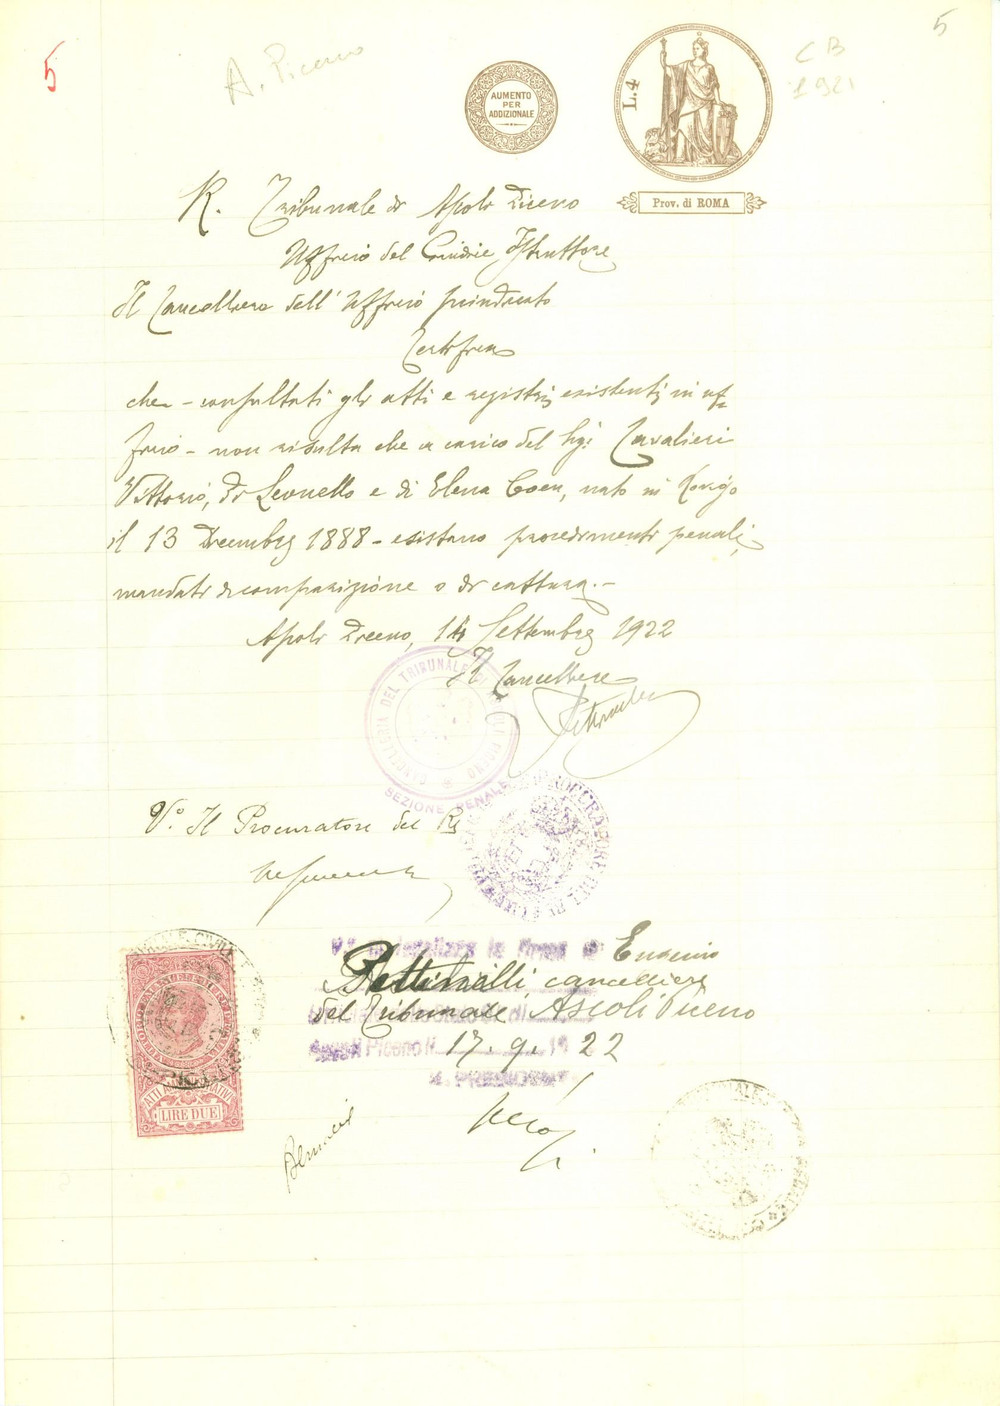 5
5
A. Piceno
CB
1921
AUMENTO
PER
ADDIZIONALE
L.4
Prov. di ROMA
R. Tribunale di Ascoli Piceno
Ufficio del Giudice Istruttore
Il Cancelliere dell'Ufficio suindicato
Certifica
che - consultati gli atti e registri esistenti in uf-
ficio - non risulta che a carico del Sig. Cavalieri
Vittorio, di Leonello e di Elena Coen, nato in
il 13 Dicembre 1888 - esistano procedimenti penali,
mandati di comparizione o di cattura. -
Ascoli Piceno, 14 Settembre 1922
Il Cancelliere
CANCELLERIA DEL TRIBUNALE
SEZIONE PENALE
V° Il Procuratore del Re
PROCURATORE DEL RE
V° la firma di Eugenio
Pettinelli, cancelliere
del Tribunale Ascoli Piceno
17. 9. 22
LIRE DUE